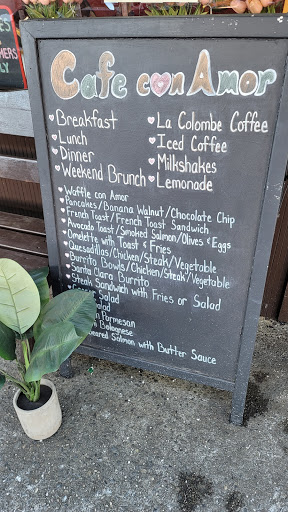 HERS
LY
Cafe con Amor
Breakfast
Lunch
Dinner
Weekend Brunch
La Colombe Coffee
Iced Coffee
Milkshakes
Lemonade
Waffle con Amor
Pancakes/Banana Walnut/Chocolate Chip
French Toast/French Toast Sandwich
Avocado Toast/Smoked Salmon/Olives & Eggs
Omelette with Toast & Fries
Quesadillas/Chicken/Steak/Vegetable
Burrito Bowls/Chicken/Steak/Vegetable
Santa Clara Burrito
Steak Sandwich with Fries or Salad
Salad
Parmesan
Bolognese
Seared Salmon with Butter Sauce